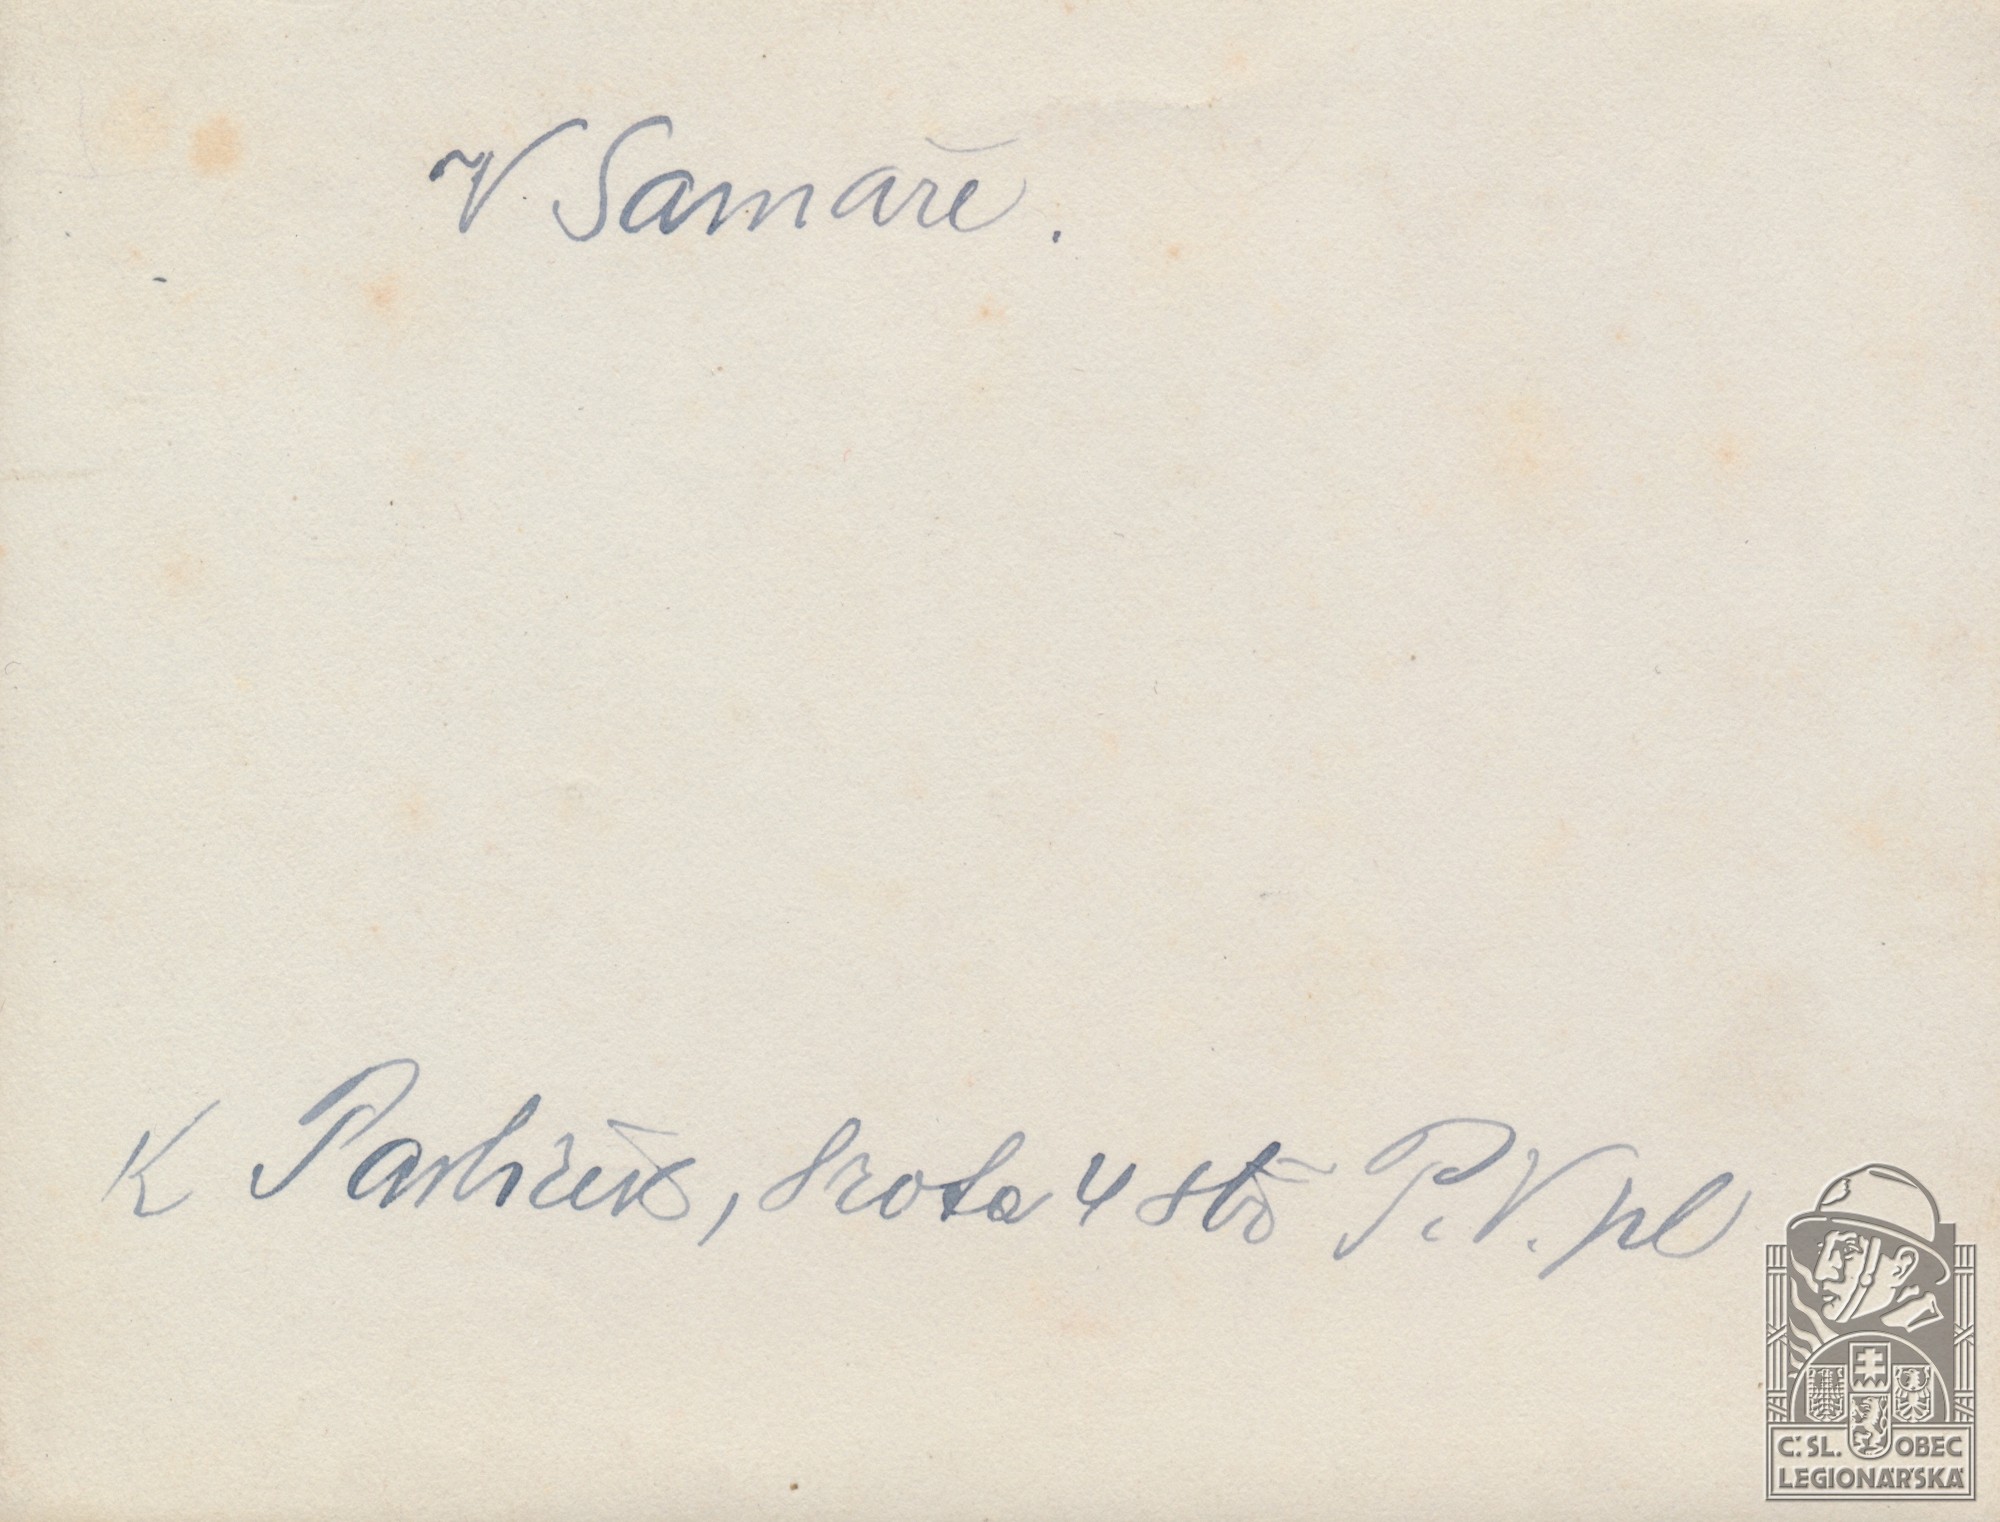 V Samaře.
K , 8 rota 4 stř P. V. pl
Č.SL. OBEC
LEGIONÁŘSKÁ